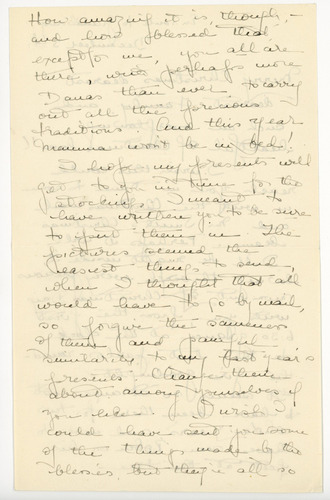 How amazing it is, though,-
and how blessed that
except for me, you all are
there, with perhaps more
Danas than ever to carry
out all the precious
traditions. And this year
mamma won't be in bed!
I hope my presents will
get to you in time for the
stockings. I meant to
have written you to be sure
to put them in. The
pictures seemed the
easiest things to send,
when I thought that all
would have to go by mail,
so forgive the sameness
of them and painful
similarity to my last year's
presents. Change them
about among yourselves if
you like. I wish I
could have sent you some
of the things made by the
blessés, but they're all so